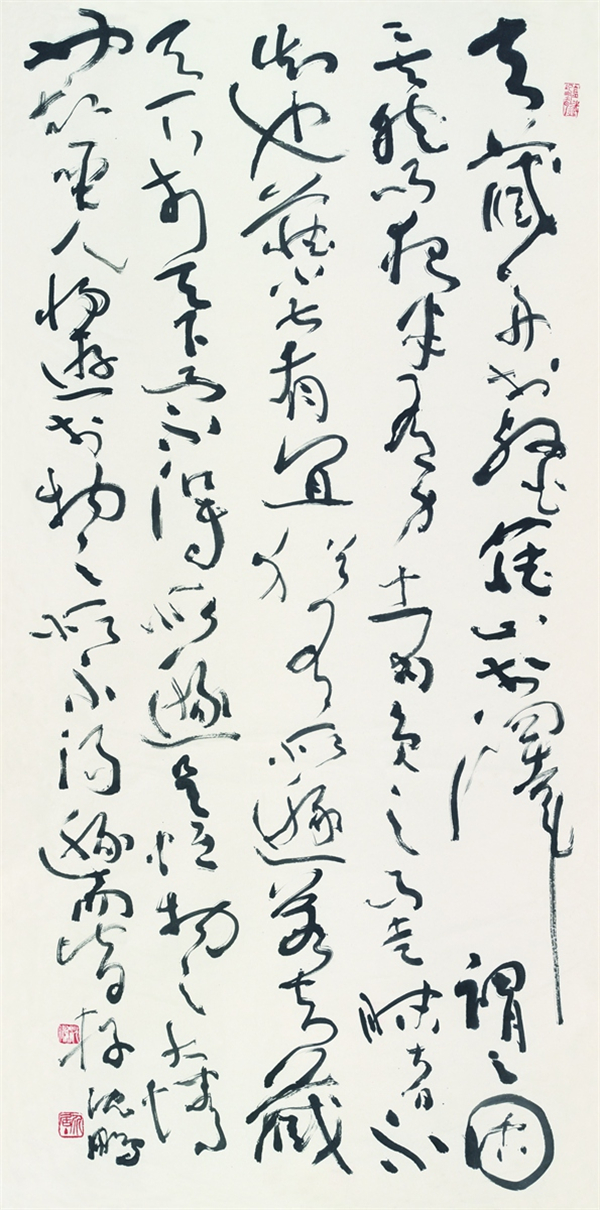 夫藏舟於壑藏山於澤謂之固
矣然而夜半有力者負之而走昧者不
知也藏小大有宜猶有所遯若夫藏
天下於天下而不得所遯是恒物之大情
也故聖人將遊於物之所不得遯而皆存沈鵬